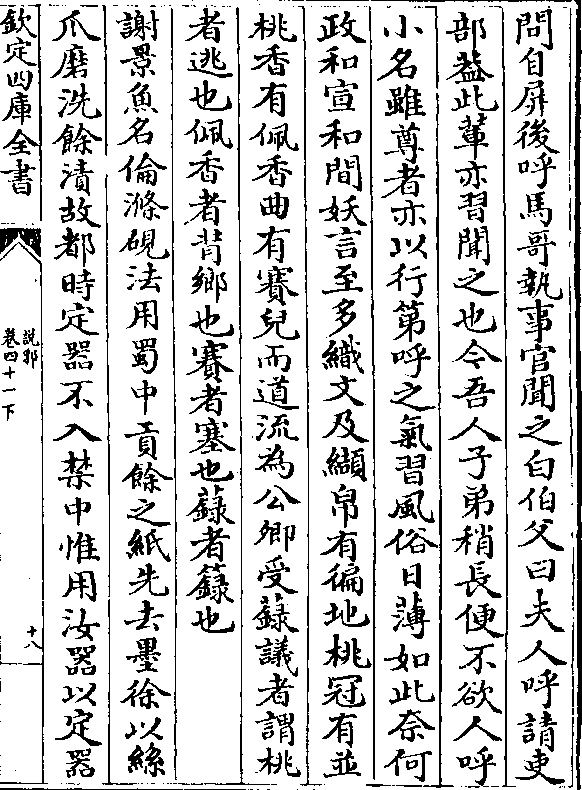 問自屏後呼馬哥執事官聞之白伯父曰夫人呼請吏
部葢此輩亦習聞之也今吾人子弟稍長便不欲人呼
小名雖尊者亦以行第呼之氣習風俗日薄如此奈何
政和宣和間妖言至多織文及纈帛有徧地桃冠有並
桃香有佩香曲有賽兒而道流為公卿受籙議者謂桃
者逃也佩香者背鄉也賽者塞也籙者籙也
謝景魚名倫滌硯法用蜀中貢餘之紙先去墨徐以絲
爪磨洗餘漬故都時定器不入禁中惟用汝器以定器
欽定四庫全書
說郛
卷四十一下
十八